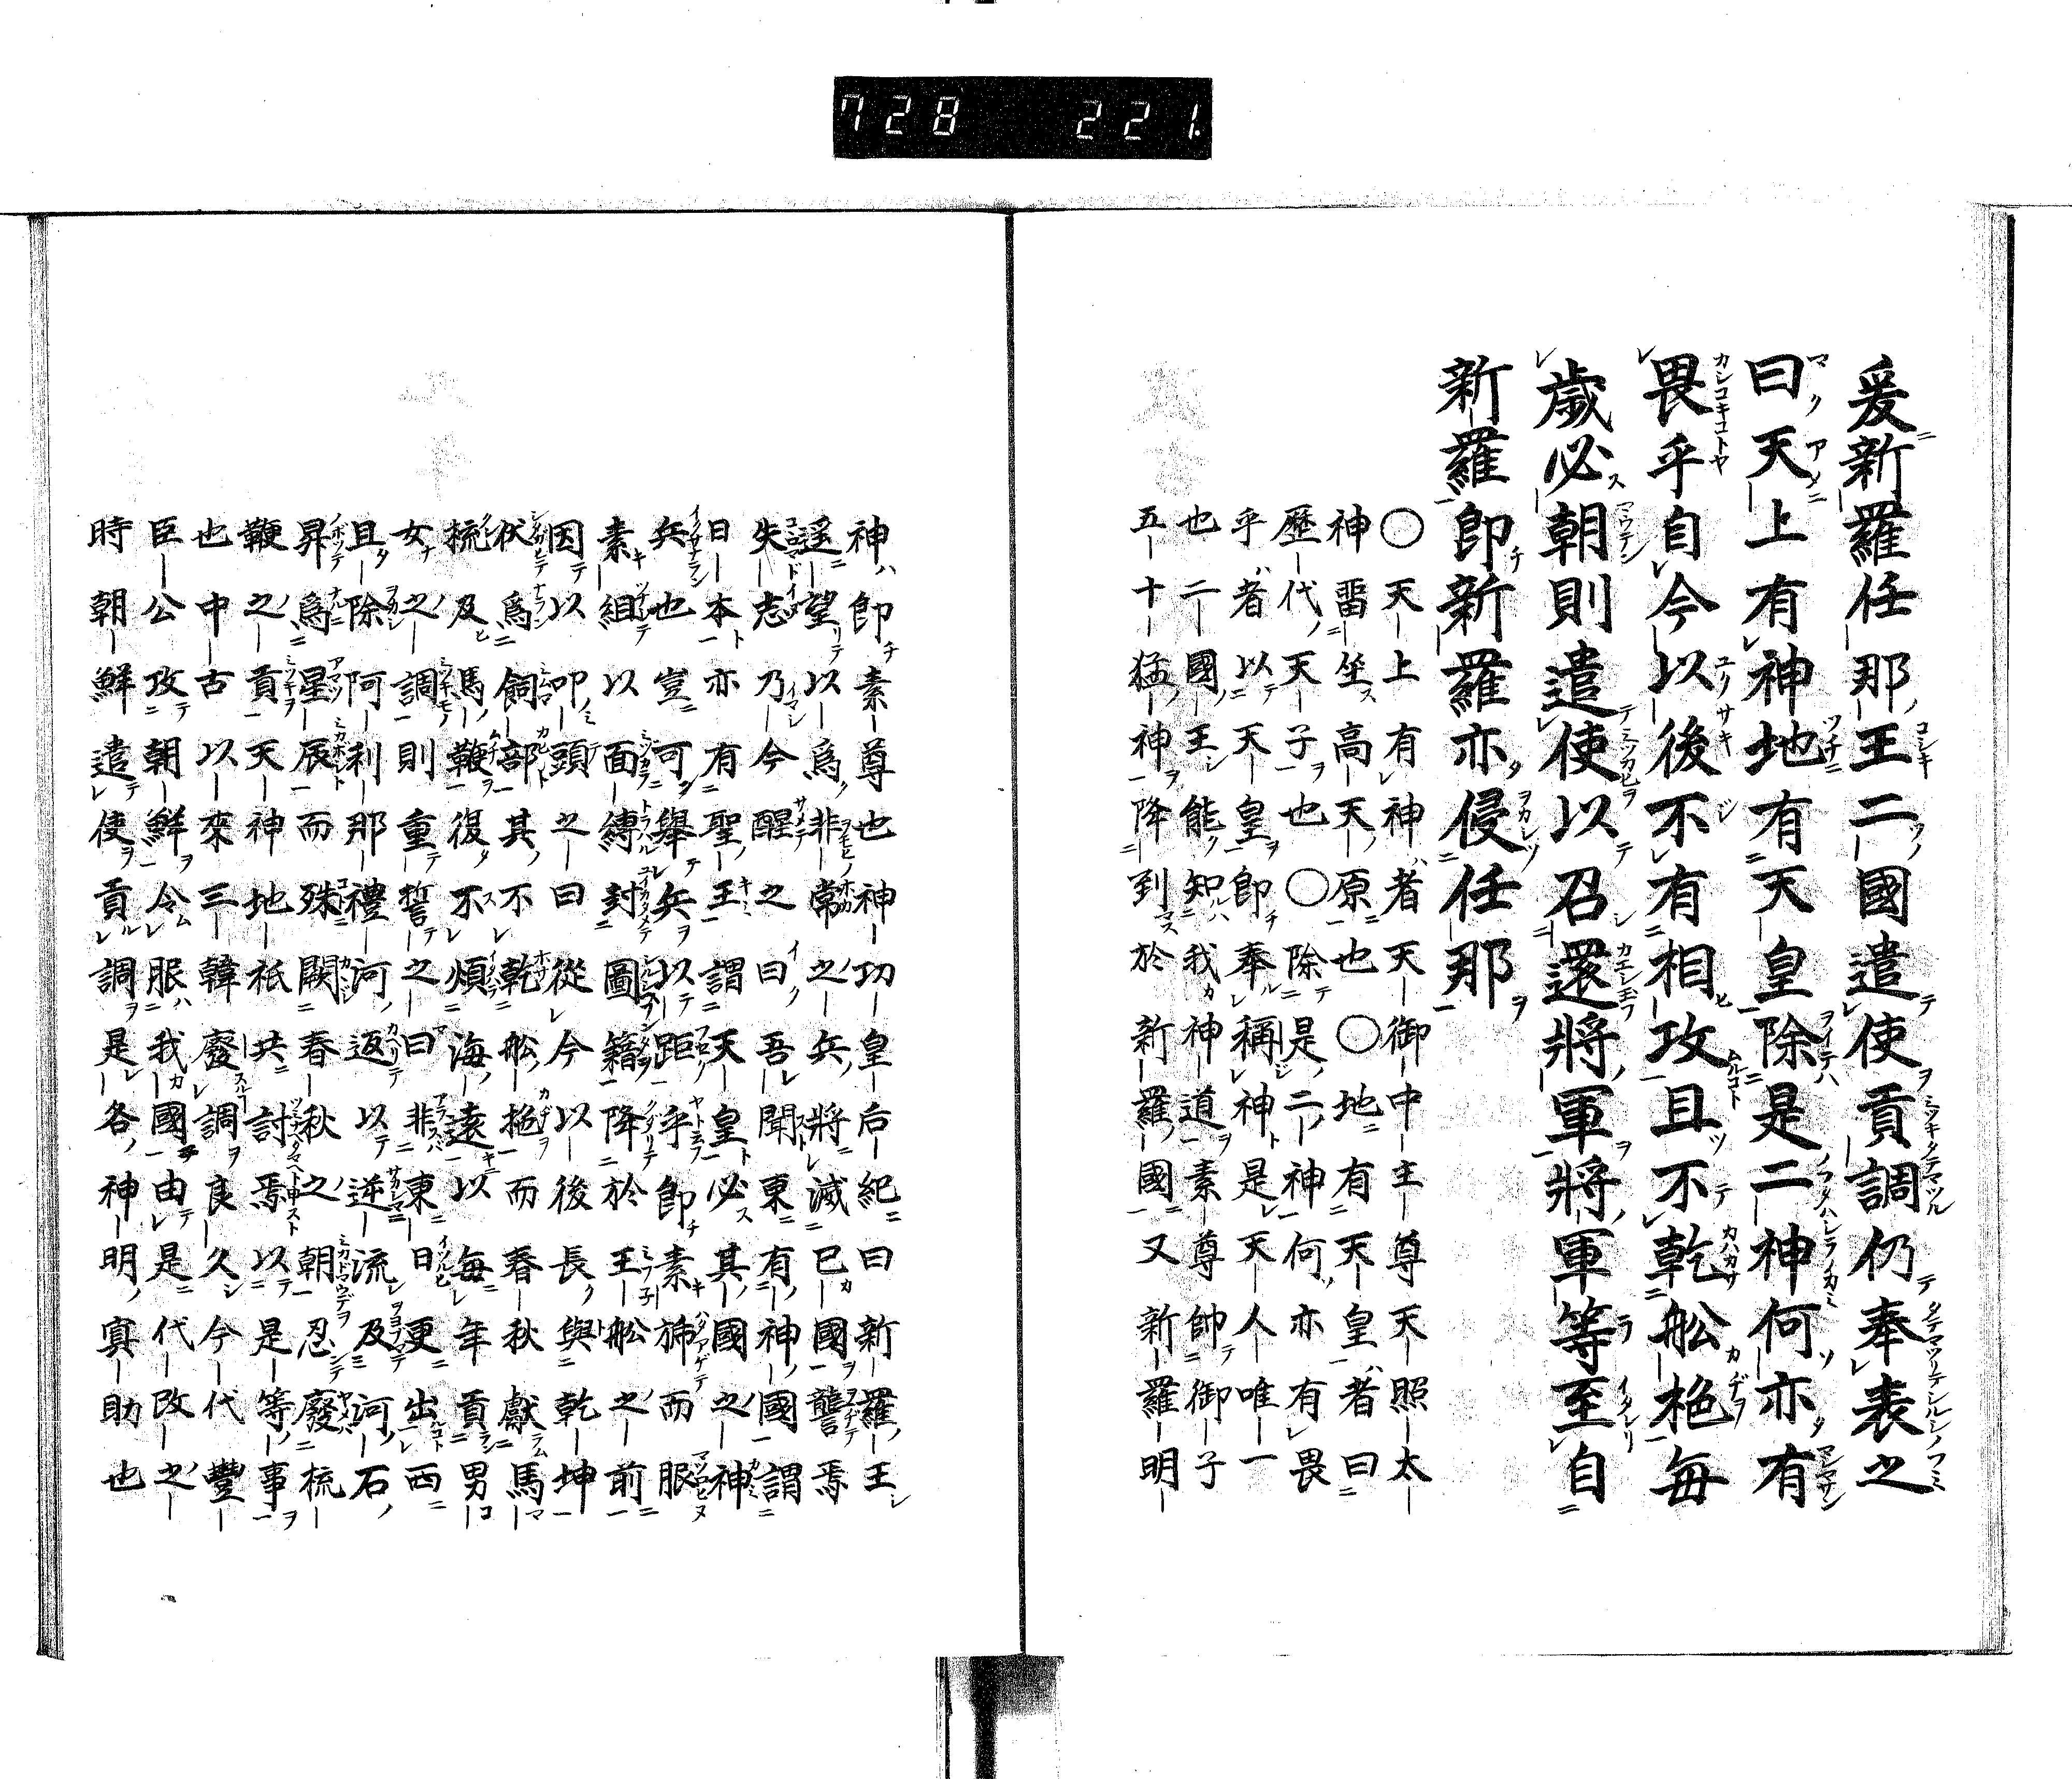 728 221
爰新羅任那王二國遣使貢調仍奉表之
曰天上有神地有天皇除是二神何亦有
畏乎自今以後不有相攻且不乾舩柂毎
歳必朝則遣使以召還將軍將軍等至自
新羅即新羅亦侵任那
〇天上有神者天御中主尊天照太
神畱坐高天原也〇地有天皇者曰
歷代天子也〇除是二神何亦有畏
乎者以天皇即奉稱神是天人唯一
也二國王能知我神道素尊帥御子
五十猛神降到於新羅國又新羅明
神即素尊也神功皇后紀曰新羅王
遥望以爲非常之兵將滅已國讋焉
失志乃今醒之曰吾聞東有神國謂
日本亦有聖王謂天皇必其國之神
兵也豈可舉兵以距乎即素斾而服
素組以面縛封圖籍降於王舩之前
因以叩頭之曰從今以後長與乾坤
伏爲飼部其不乾舩柂而春秋獻馬
梳及馬鞭復不煩海遠以毎年貢男
女之調則重誓之曰非東日更出西
且除阿利那禮河返以逆流及河石
昇爲星辰而殊闕春秋之朝忍廢梳
鞭之貢天神地祇共討焉以是等事
也中古以來三韓廢調良久今代豐
臣公攻朝鮮令服我國由是代改之
時朝鮮遣使貢調是各神明寘助也